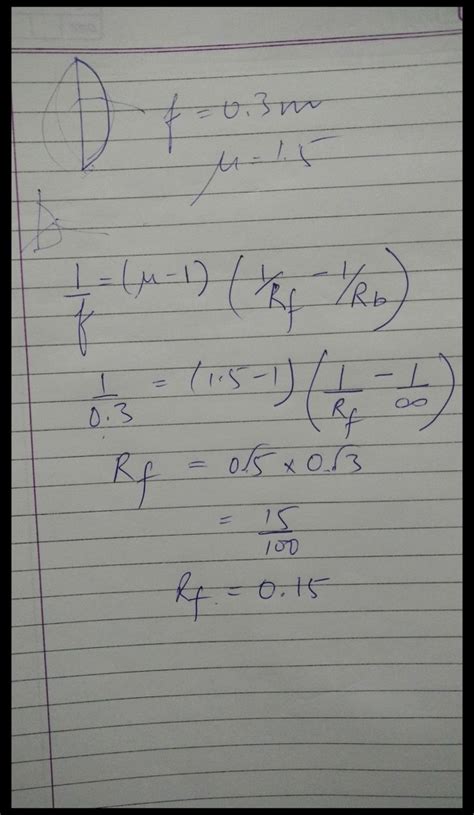 f = 0.3m
μ = 1.5
1/f = (μ-1) (1/Rf - 1/Rb)
1/0.3 = (1.5-1) (1/Rf - 1/∞)
Rf = 0.5 × 0.3
= 15/100
Rf = 0.15